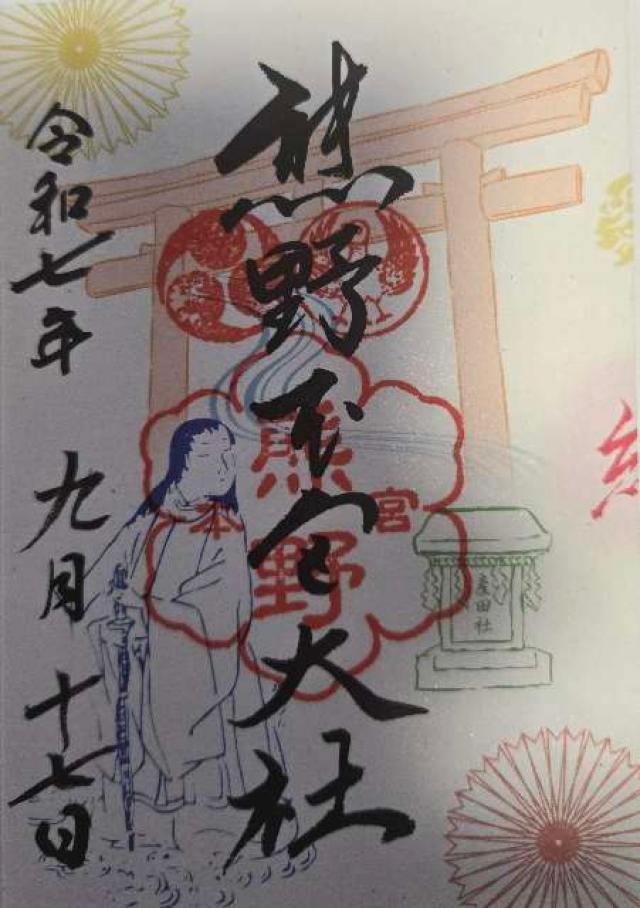 熊野本宮大社
令和七年 九月十七日
熊野
本宮
産田社